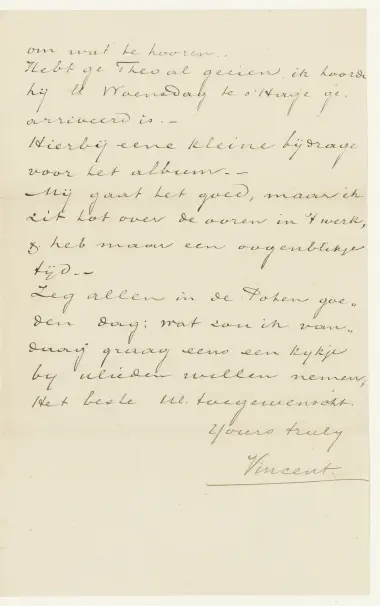 om wat te hooren..
Hebt ge Theo al gezien, ik hoorde
hij ll Woensdag te s'Hage ge-
arriveerd is.-
Hierbij eene kleine bijdrage
voor het album.-
Mij gaat het goed, maar ik
zit tot over de ooren in 't werk,
& heb maar een oogenblikje
tijd.-
Zeg allen in de Poten goe-
den dag; wat zou ik van-
daag graag eens een kijkje
bij ulieden willen nemen,
Het beste Ul. toegewenscht.
Yours truly
Vincent.